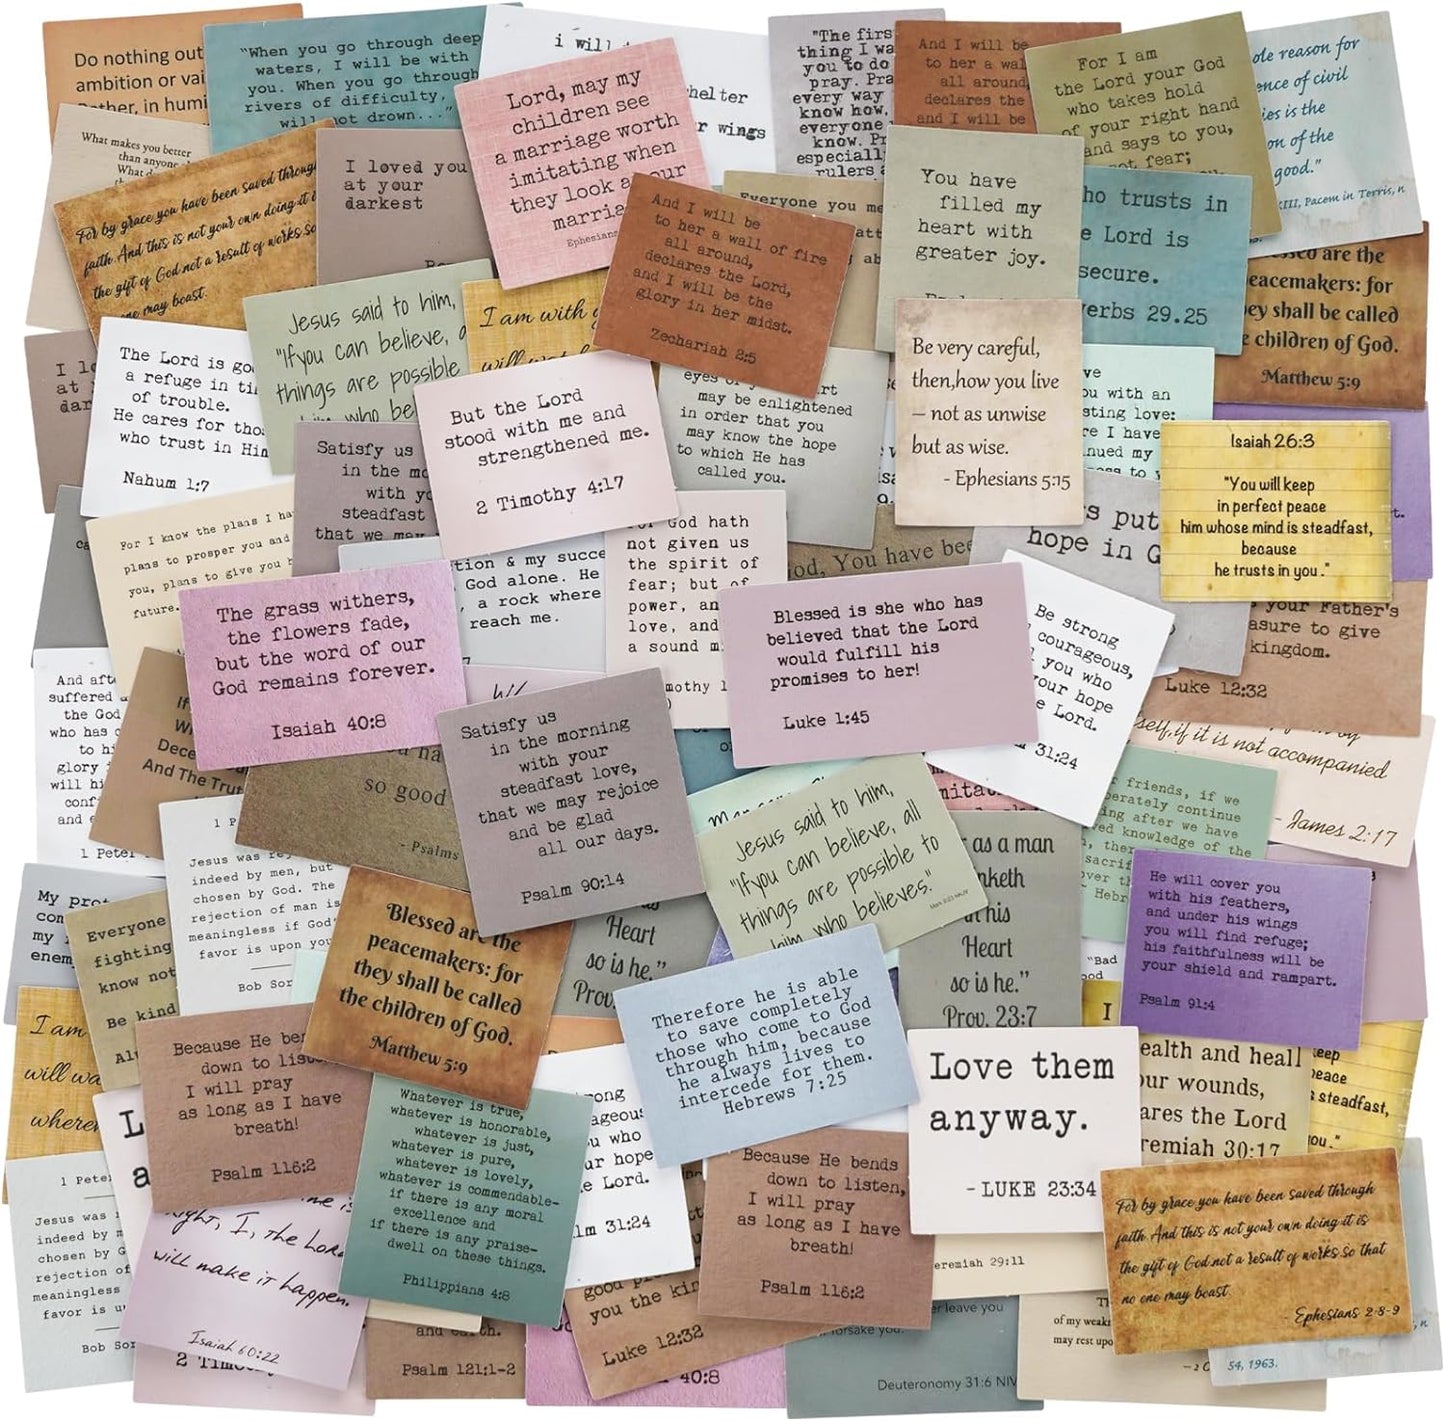 Do nothing out
ambition or vai
Rather, in humi
"When you go through deep
waters, I will be with
you. When you go through
rivers of difficulty,
will not drown..."
i will
shelter
r wings
Lord, may my
children see
a marriage worth
imitating when
they look at our
marria
Ephesians
"The first
thing I wa
you to do
pray. Pra
every way
know how,
everyone
know. Pr
especially
rulers a
And I will be
to her a wal
all around,
declares the
and I will be
For I am
the Lord your God
who takes hold
of your right hand
and says to you,
not fear;
ole reason for
ence of civil
ies is the
on of the
good."
XIII, Pacem in Terris, n
What makes you better
than anyone
What d
For by grace you have been saved through
faith. And this is not your own doing it i
the gift of God not a result of works so
one may boast.
I loved you
at your
darkest
Everyone you me
att
ng ab
And I will be
to her a wall of fire
all around,
declares the Lord,
and I will be the
glory in her midst.
Zechariah 2:5
You have
filled my
heart with
greater joy.
ho trusts in
e Lord is
secure.
verbs 29.25
essed are the
peacemakers: for
hey shall be called
e children of God.
Matthew 5:9
Jesus said to him,
"Ifyou can believe, a
things are possible
him who be
I am with
will wat
I lo
at y
dar
The Lord is go
a refuge in ti
of trouble.
He cares for tho
who trust in Him
Nahum 1:7
But the Lord
stood with me and
strengthened me.
2 Timothy 4:17
eyes of y rt
may be enlightened
in order that you
may know the hope
to which He has
called you.
Be very careful,
then,how you live
– not as unwise
but as wise.
- Ephesians 5:15
ve
ou with an
sting love:
re I have
nued my
ness to y
Isaiah 26:3
"You will keep
in perfect peace
him whose mind is steadfast,
because
he trusts in you ."
Satisfy us
in the mo
with yo
steadfast
that we may
For I know the plans I ha
plans to prosper you and
you, plans to give you h
future.
tion & my succe
God alone. He
, a rock where
reach me.
For God hath
not given us
the spirit of
fear; but of
power, an
love, and
a sound m
mothy 1
od, You have bee
s put
hope in G
The grass withers,
the flowers fade,
but the word of our
God remains forever.
Isaiah 40:8
Blessed is she who has
believed that the Lord
would fulfill his
promises to her!
Luke 1:45
Be strong
courageous,
l you who
your hope
e Lord.
m 31:24
your Father's
asure to give
kingdom.
Luke 12:32
And afte
suffered a
the God
who has c
to hi
glory i
will hi
conf
and e
1 Peter
If
Wi
Dece
And The Trut
so good
- Psalms
Satisfy us
in the morning
with your
steadfast love,
that we may rejoice
and be glad
all our days.
Psalm 90:14
self, if it is not accompanied
- James 2:17
Jesus said to him,
"Ifyou can believe, all
things are possible to
him who believes."
Mark 9:23 NKJV
friends, if we
perately continue
ing after we have
ved knowledge of the
h, ther
sacrif
over th
- Hebr
1 P
Jesus was rej
indeed by men, but
chosen by God. The
rejection of man is
meaningless if God'
favor is upon you
Bob Sor
My prot
com
my
enem
Everyone
fighting
know not
Be kind
Alw
Blessed are the
peacemakers: for
they shall be called
the children of God.
Matthew 5:9
as
Heart
so is he."
Prov.
as a man
inketh
in his
Heart
so is he."
Prov. 23:7
He will cover you
with his feathers,
and under his wings
you will find refuge;
his faithfulness will be
your shield and rampart.
Psalm 91:4
"Bad
ood
Therefore he is able
to save completely
those who come to God
through him, because
he always lives to
intercede for them.
Hebrews 7:25
I am
will wa
wherer
Because He ben
down to liste
I will pray
as long as I have
breath!
Psalm 116:2
Love them
anyway.
-LUKE 23:34
I
ealth and heal
our wounds,
ares the Lord
remiah 30:17
keep
peace
s steadfast,
you."
Whatever is true,
whatever is honorable,
whatever is just,
whatever is pure,
whatever is lovely,
whatever is commendable-
if there is any moral
excellence and
if there is any praise-
dwell on these things.
Philippians 4:8
rong
ageous
u who
ur hope
e Lord.
lm 31:24
Because He bends
down to listen,
I will pray
as long as I have
breath!
Psalm 116:2
For by grace you have been saved through
faith. And this is not your own doing it is
the gift of God not a result of works so that
no one may boast.
- Ephesians 2-8-9
1 Peter
Jesus was r
indeed by m
chosen by G
rejection of
meaningless
favor is u
Bob Sor
L
a
me is
right, I, the Lord
will make it happen.
Isaiah 60:22
2 Timo
and earth.
Psalm 121:1-2
40:8
good
you the kin
Luke 12:32
er leave you
forsake you.
Deuteronomy 31:6 NIV
eremiah 29:11
Th
of my weakn
may rest upon
— 2 C
54, 1963.